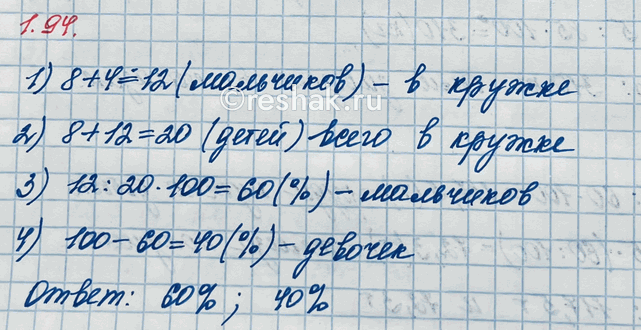 1.94.
1) 8+4=12 (мальчиков) – в кружке
©reshak.ru
2) 8+12=20 (детей) всего в кружке
3) 12:20·100=60(%) – мальчиков
4) 100–60=40(%) – девочек
Ответ: 60%; 40%